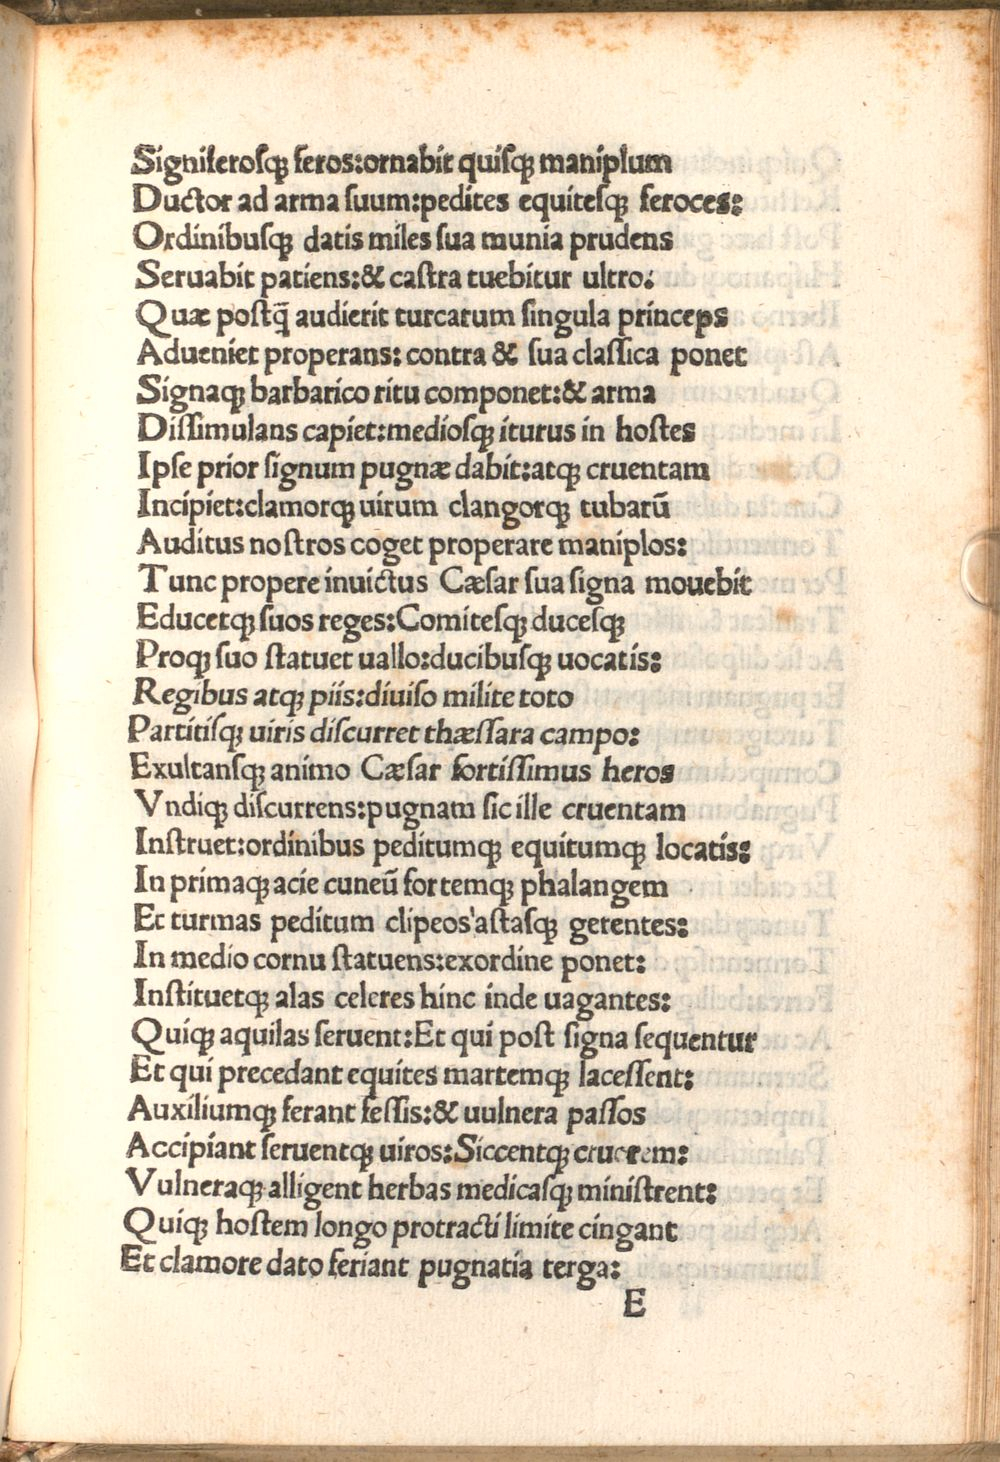 Signiferosqꝫ feros:ornabit quisqꝫ maniplum
Ductor ad arma suum:pedites equitesqꝫ feroces:
Ordinibusqꝫ datis miles sua munia prudens
Seruabit patiens:& castra tuebitur ultro:
Quæ postq̃ audierit turcarum singula princeps
Adueniet properans: contra & sua classica ponet
Signaqꝫ barbarico ritu componet:& arma
Dissimulans capiet:mediosqꝫ iturus in hostes
Ipse prior signum pugnæ dabit:atqꝫ cruentam
Incipiet:clamorqꝫ uirum clangorqꝫ tubarū
Auditus nostros coget properare maniplos:
Tunc propere inuictus Cæsar sua signa mouebit
Educetqꝫ suos reges:Comitesqꝫ ducesqꝫ
Proqꝫ suo statuet uallo:ducibusqꝫ uocatis:
Regibus atqꝫ piis:diuiso milite toto
Partitisqꝫ uiris discurret thæssara campo:
Exultansqꝫ animo Cæsar fortissimus heros
Vndiqꝫ discurrens:pugnam sic ille cruentam
Instruet:ordinibus peditumqꝫ equitumqꝫ locatis:
In primaqꝫ acie cuneū fortemqꝫ phalangem
Et turmas peditum clipeos'astasqꝫ gerentes:
In medio cornu statuens:exordine ponet:
Instituetqꝫ alas celeres hinc inde uagantes:
Quiqꝫ aquilas seruent:Et qui post signa sequentur
Et qui precedant equites martemqꝫ lacessent:
Auxiliumqꝫ ferant fessis:& uulnera passos
Accipiant seruentqꝫ uiros:Siccentqꝫ cruorem:
Vulneraqꝫ alligent herbas medicasqꝫ ministrent:
Quiqꝫ hostem longo protracti limite cingant
Et clamore dato feriant pugnatia terga:
E